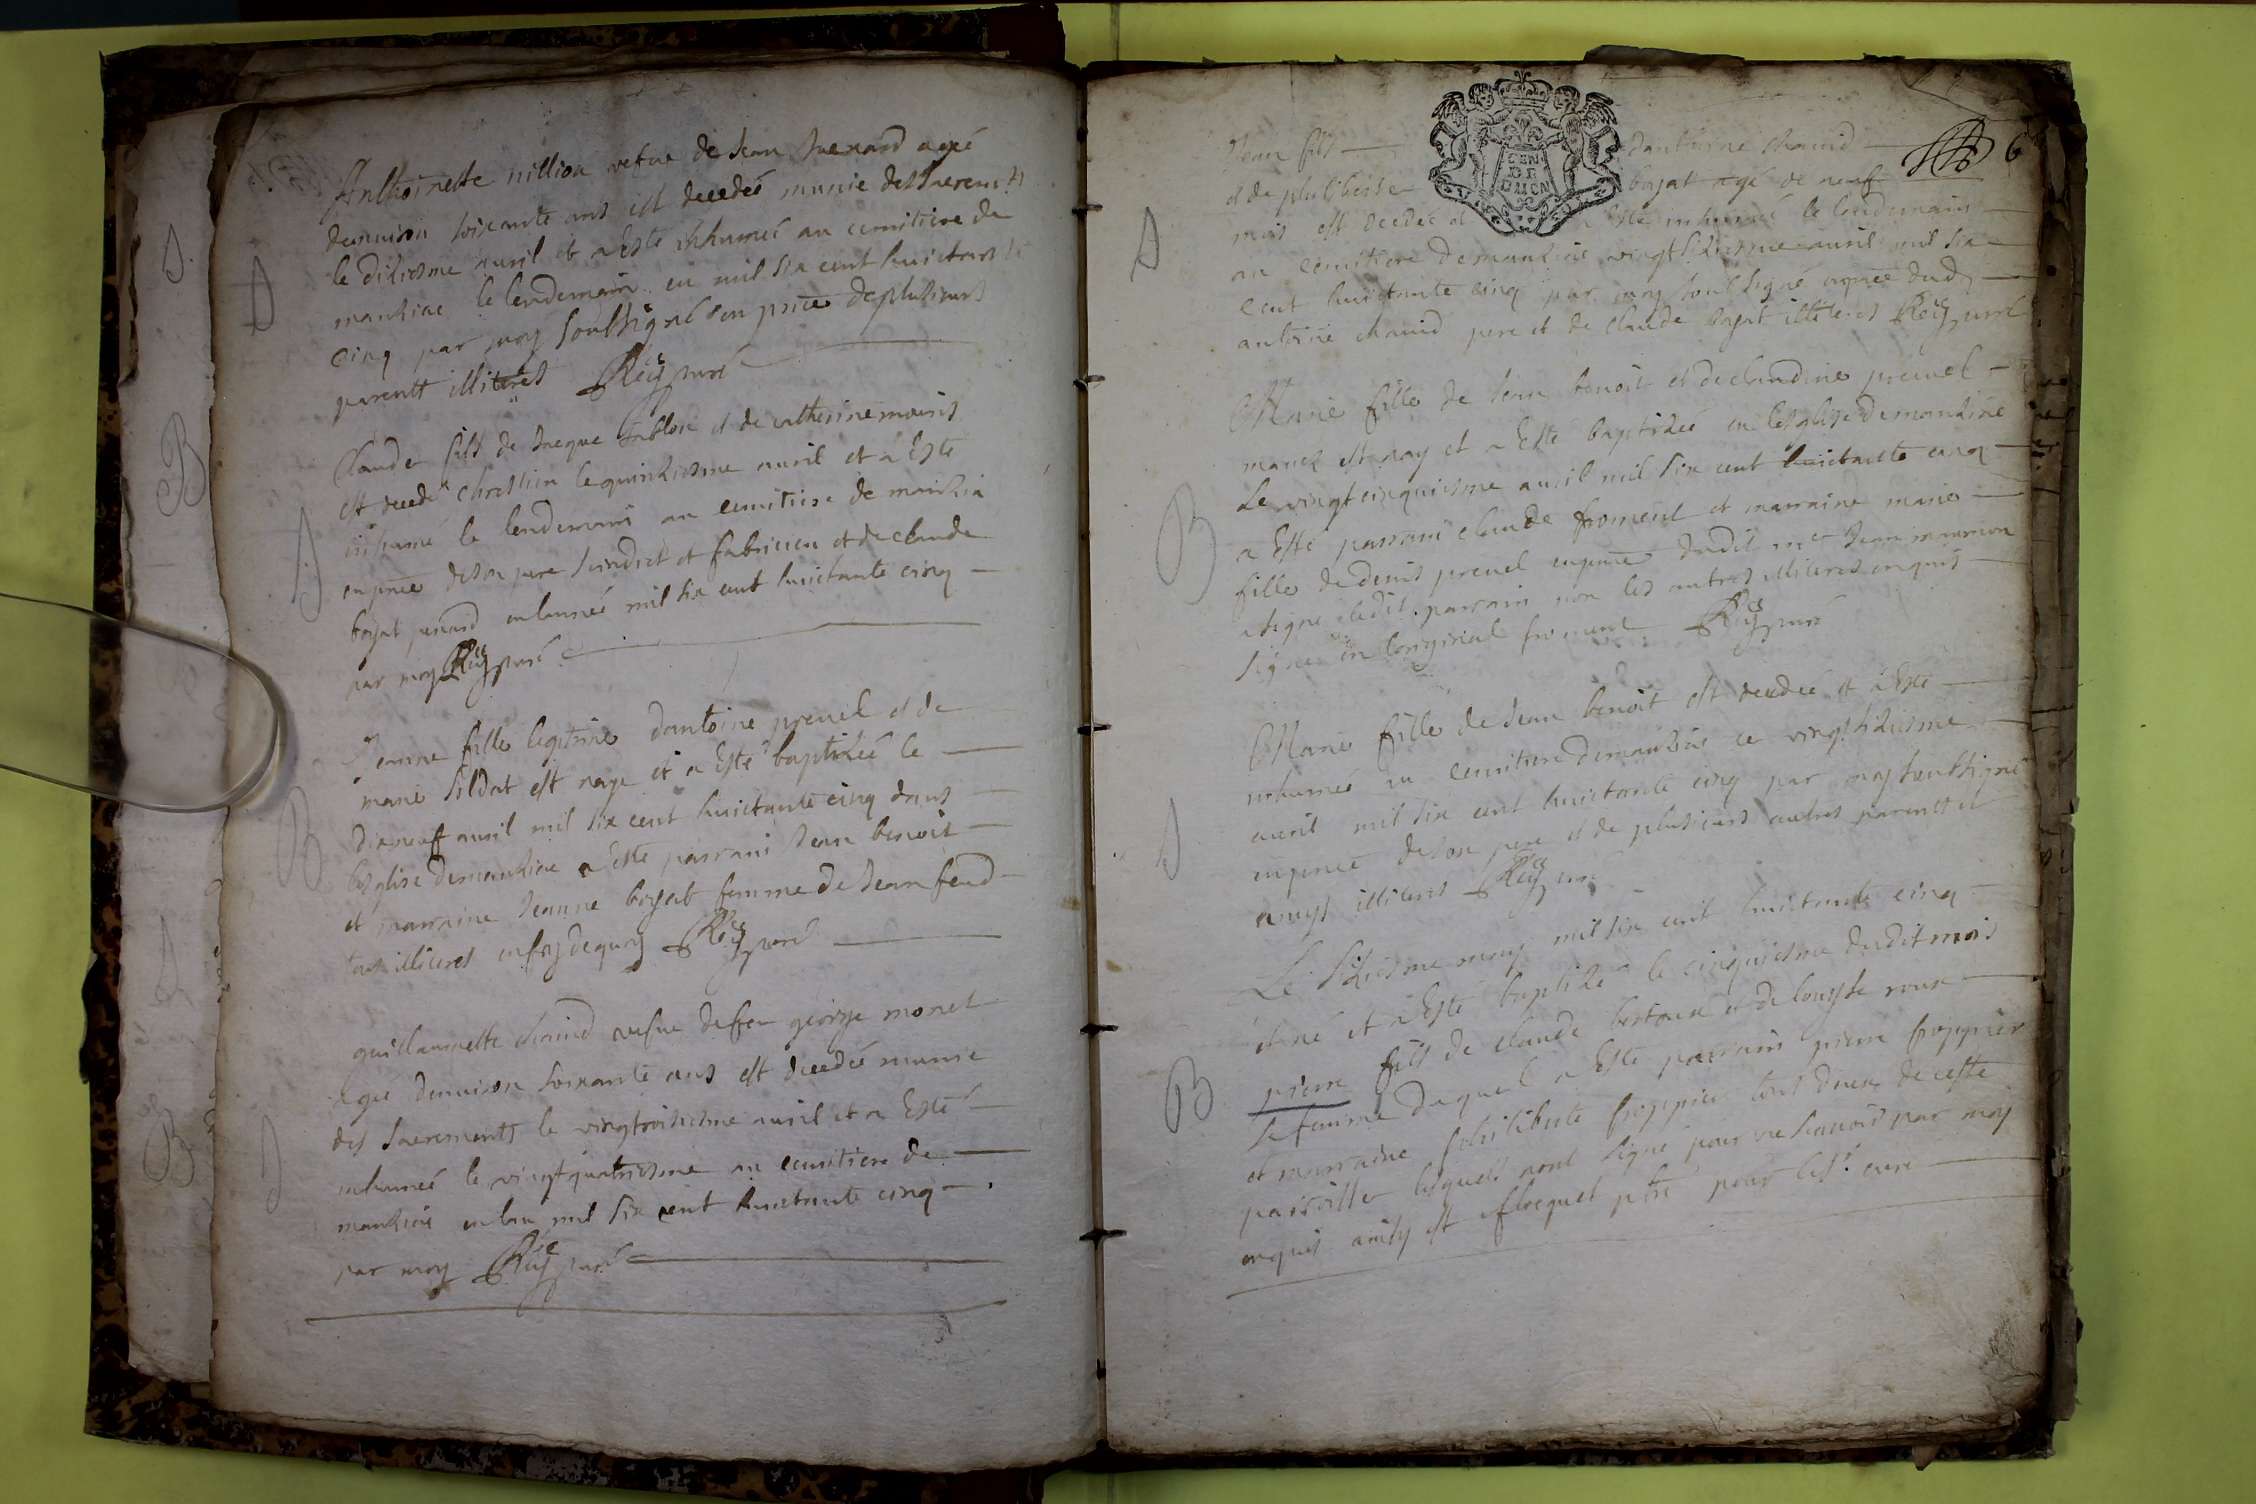 Anthoinette million vefue de Jean Juenard agée
denuiron soixante ans est decedée munie des sacrem ts
le dixiesme auril et a Esté inhumée au cemitiere de
manziac le lendemain en mil six cent huictante
cinq par moy soussigné en pnce de plusieurs
parentt illiteres curé
Claude fils de Jacque sablon et de catherine
est decedé chrestien le quinziesme auril et a Esté
inhumé le lendemain au cemitiere de manzia
en pnce de son pere scindict et fabricien et de claude
bojat penard en lannée mil six cent huictante cinq
par moy curé
Jeanne fille legitime dantoine preuel et de
marie soldat est naye et a Esté baptizée le
dixneuf auril mil six cent huictante cinq dans
lesglise demanziac a este parrain Jean benoit
et marraine Jeanne bojat femme de Jean feud
tous illiteres en foy dequoy curé
guillaumette chanid vefue de feu george moret
agée denuiron soixante ans est decedée munie
des sacrementt le vingtroisiesme auril et a Esté
inhumée le vingtquatriesme au cemitiere de
manziac en lan mil six cent huictante cinq
par moy curé
Jean fils dantoine chanid 6
et de philiberte bojat agé de neuf
mois est decedé et a Esté inhumé le lendemain
au cemitiere demanziac vingt sixiesme auril mil six
cent huictante cinq par moy soussigné en pnce dud
antoine chanid pere et de claude bojat illiteres curé
Marie fille de Jean benoit et de claudine preuel
mariez est nay et a Esté baptizée en lesglise demanziac
Le vingtcinquiesme auril mil six cent huictante cinq
a Esté parrain claude froment et marraine marie
fille de denis preuel en pnce dudit Jean
a signé ledit parrain non les autres illiteres enquis
signé en loriginal froment curé
Marie fille de Jean benoit est decedée et a Esté
inhumée au cemitiere demanziac ce vingtsixiesme
auril mil six cent huictante cinq par moy soussigné
en pnce de son pere et de plusieurs autres parentt et
amys illiteres curé
Le sixiesme may mil six cent huictante cinq
est né et a Esté baptizé le cinquiesme dudit mois
pierre fils de claude bertoux et de louyse roux
sa femme duquel a Esté parrain pierre froppier
et marraine philiberte froppier tous deux de ceste
parroisse lesquels nont signé pour ne scauoir par moy
enquis ainsy est floquet ptre pour Le sr curé